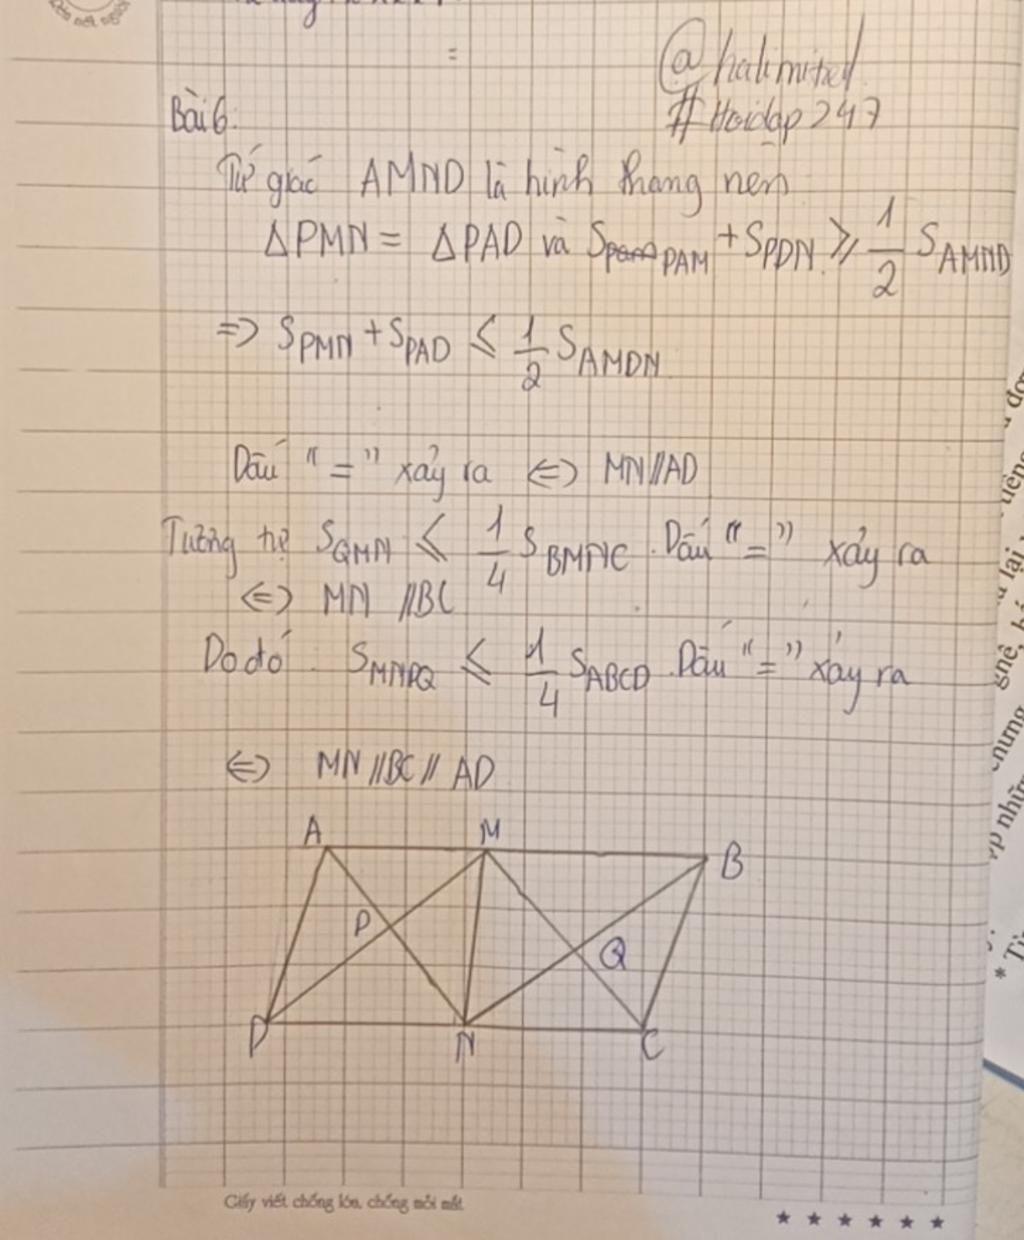 =
@halimited
#Hoidap247
Bài 6:
Tứ giác AMND là hình thang nên
ΔPMN = ΔPAD và S PAM + S PDN ≥ 1/2 S AMND
=> S PMN + S PAD ≤ 1/2 S AMDN
Dấu "=" xảy ra <=> MN//AD
Tương tự S QMN ≤ 1/4 S BMNC. Dấu "=" xảy ra
<=> MN //BC
Do đó: S MNPQ ≤ 1/4 S ABCD. Dấu "=" xảy ra
<=> MN//BC// AD
A M B
P Q
D N C
Giấy viết chống lóa, chống mỏi mắt